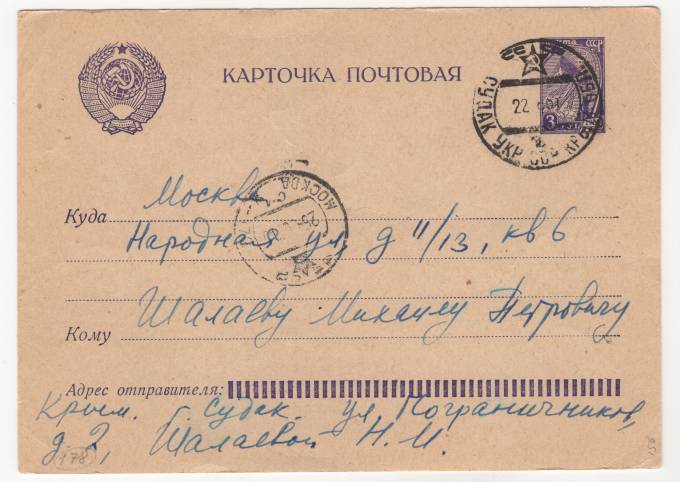 КАРТОЧКА ПОЧТОВАЯ
ПОЧТА СССР
3 КОП
СУДАК УКР. ССР КРЫМ. ОБЛ.
22
МОСКВА
Куда Москва
Народная ул. д 11/13, кв 6
Кому Шалаеву Михаилу Петровичу
Адрес отправителя:
Крым. г. Судак. ул. Пограничников,
д. 2, Шалаевой Н. И.
178